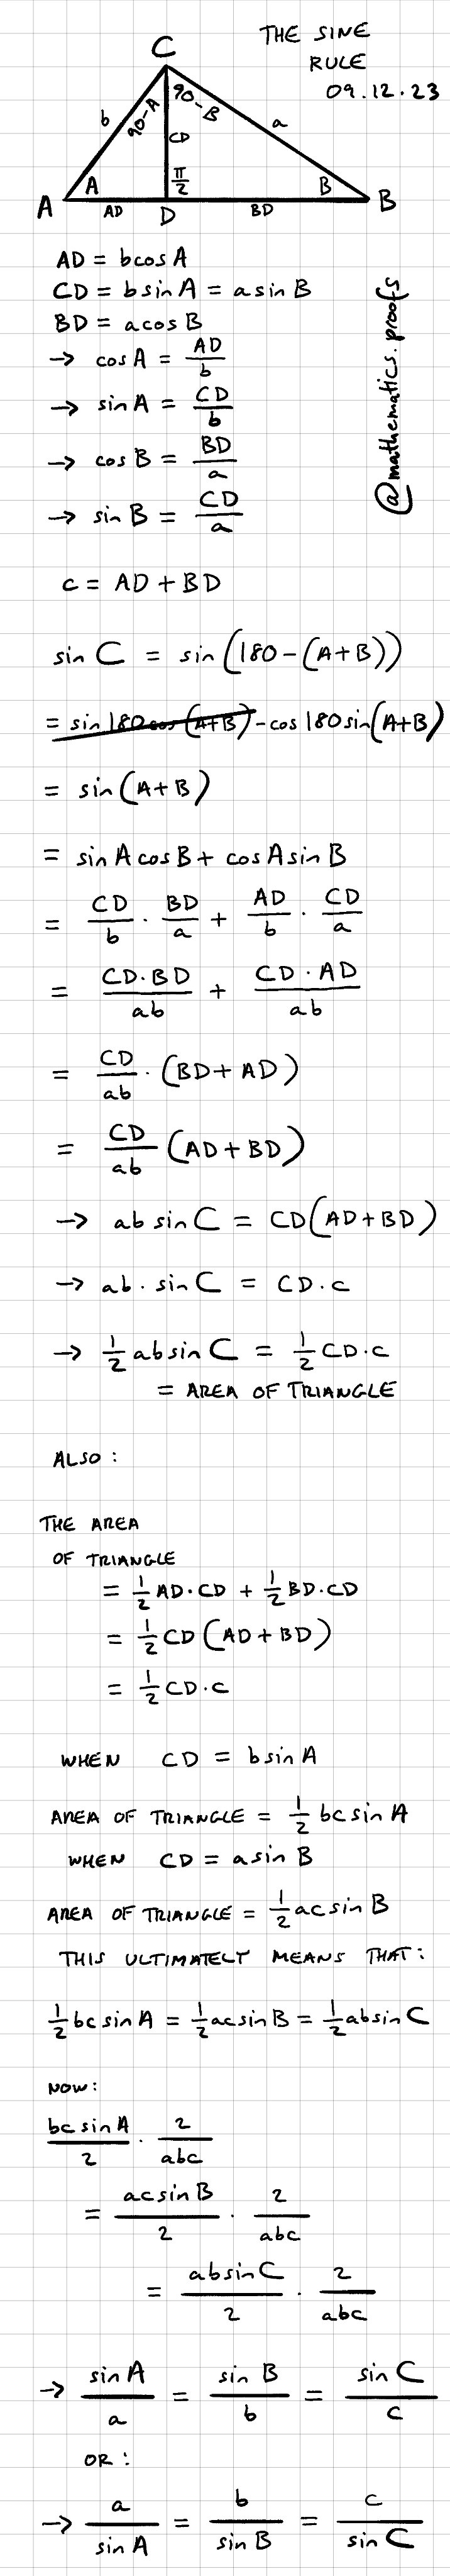 THE SINE
RULE
09.12.23
C
b
90-A
90-B
CD
a
A
A
π/2
B
B
AD
D
BD
AD = bcosA
CD = bsinA = asinB
BD = acosB
→ cosA = AD/b
→ sinA = CD/b
→ cosB = BD/a
→ sinB = CD/a
@mathematics.proofs
c = AD + BD
sin C = sin(180-(A+B))
= sin180cos(A+B) - cos180sin(A+B)
= sin(A+B)
= sinAcosB + cosAsinB
= CD/b · BD/a + AD/b · CD/a
= CD·BD/ab + CD·AD/ab
= CD/ab · (BD + AD)
= CD/ab (AD + BD)
→ ab sinC = CD(AD+BD)
→ ab · sinC = CD·c
→ 1/2 absinC = 1/2 CD·c
= AREA OF TRIANGLE
ALSO:
THE AREA
OF TRIANGLE
= 1/2 AD·CD + 1/2 BD·CD
= 1/2 CD (AD + BD)
= 1/2 CD·c
WHEN CD = bsinA
AREA OF TRIANGLE = 1/2 bcsinA
WHEN CD = asinB
AREA OF TRIANGLE = 1/2 acsinB
THIS ULTIMATELY MEANS THAT:
1/2 bcsinA = 1/2 acsinB = 1/2 absinC
NOW:
bcsinA/2 · 2/abc
= acsinB/2 · 2/abc
= absinC/2 · 2/abc
→ sinA/a = sinB/b = sinC/c
OR:
→ a/sinA = b/sinB = c/sinC